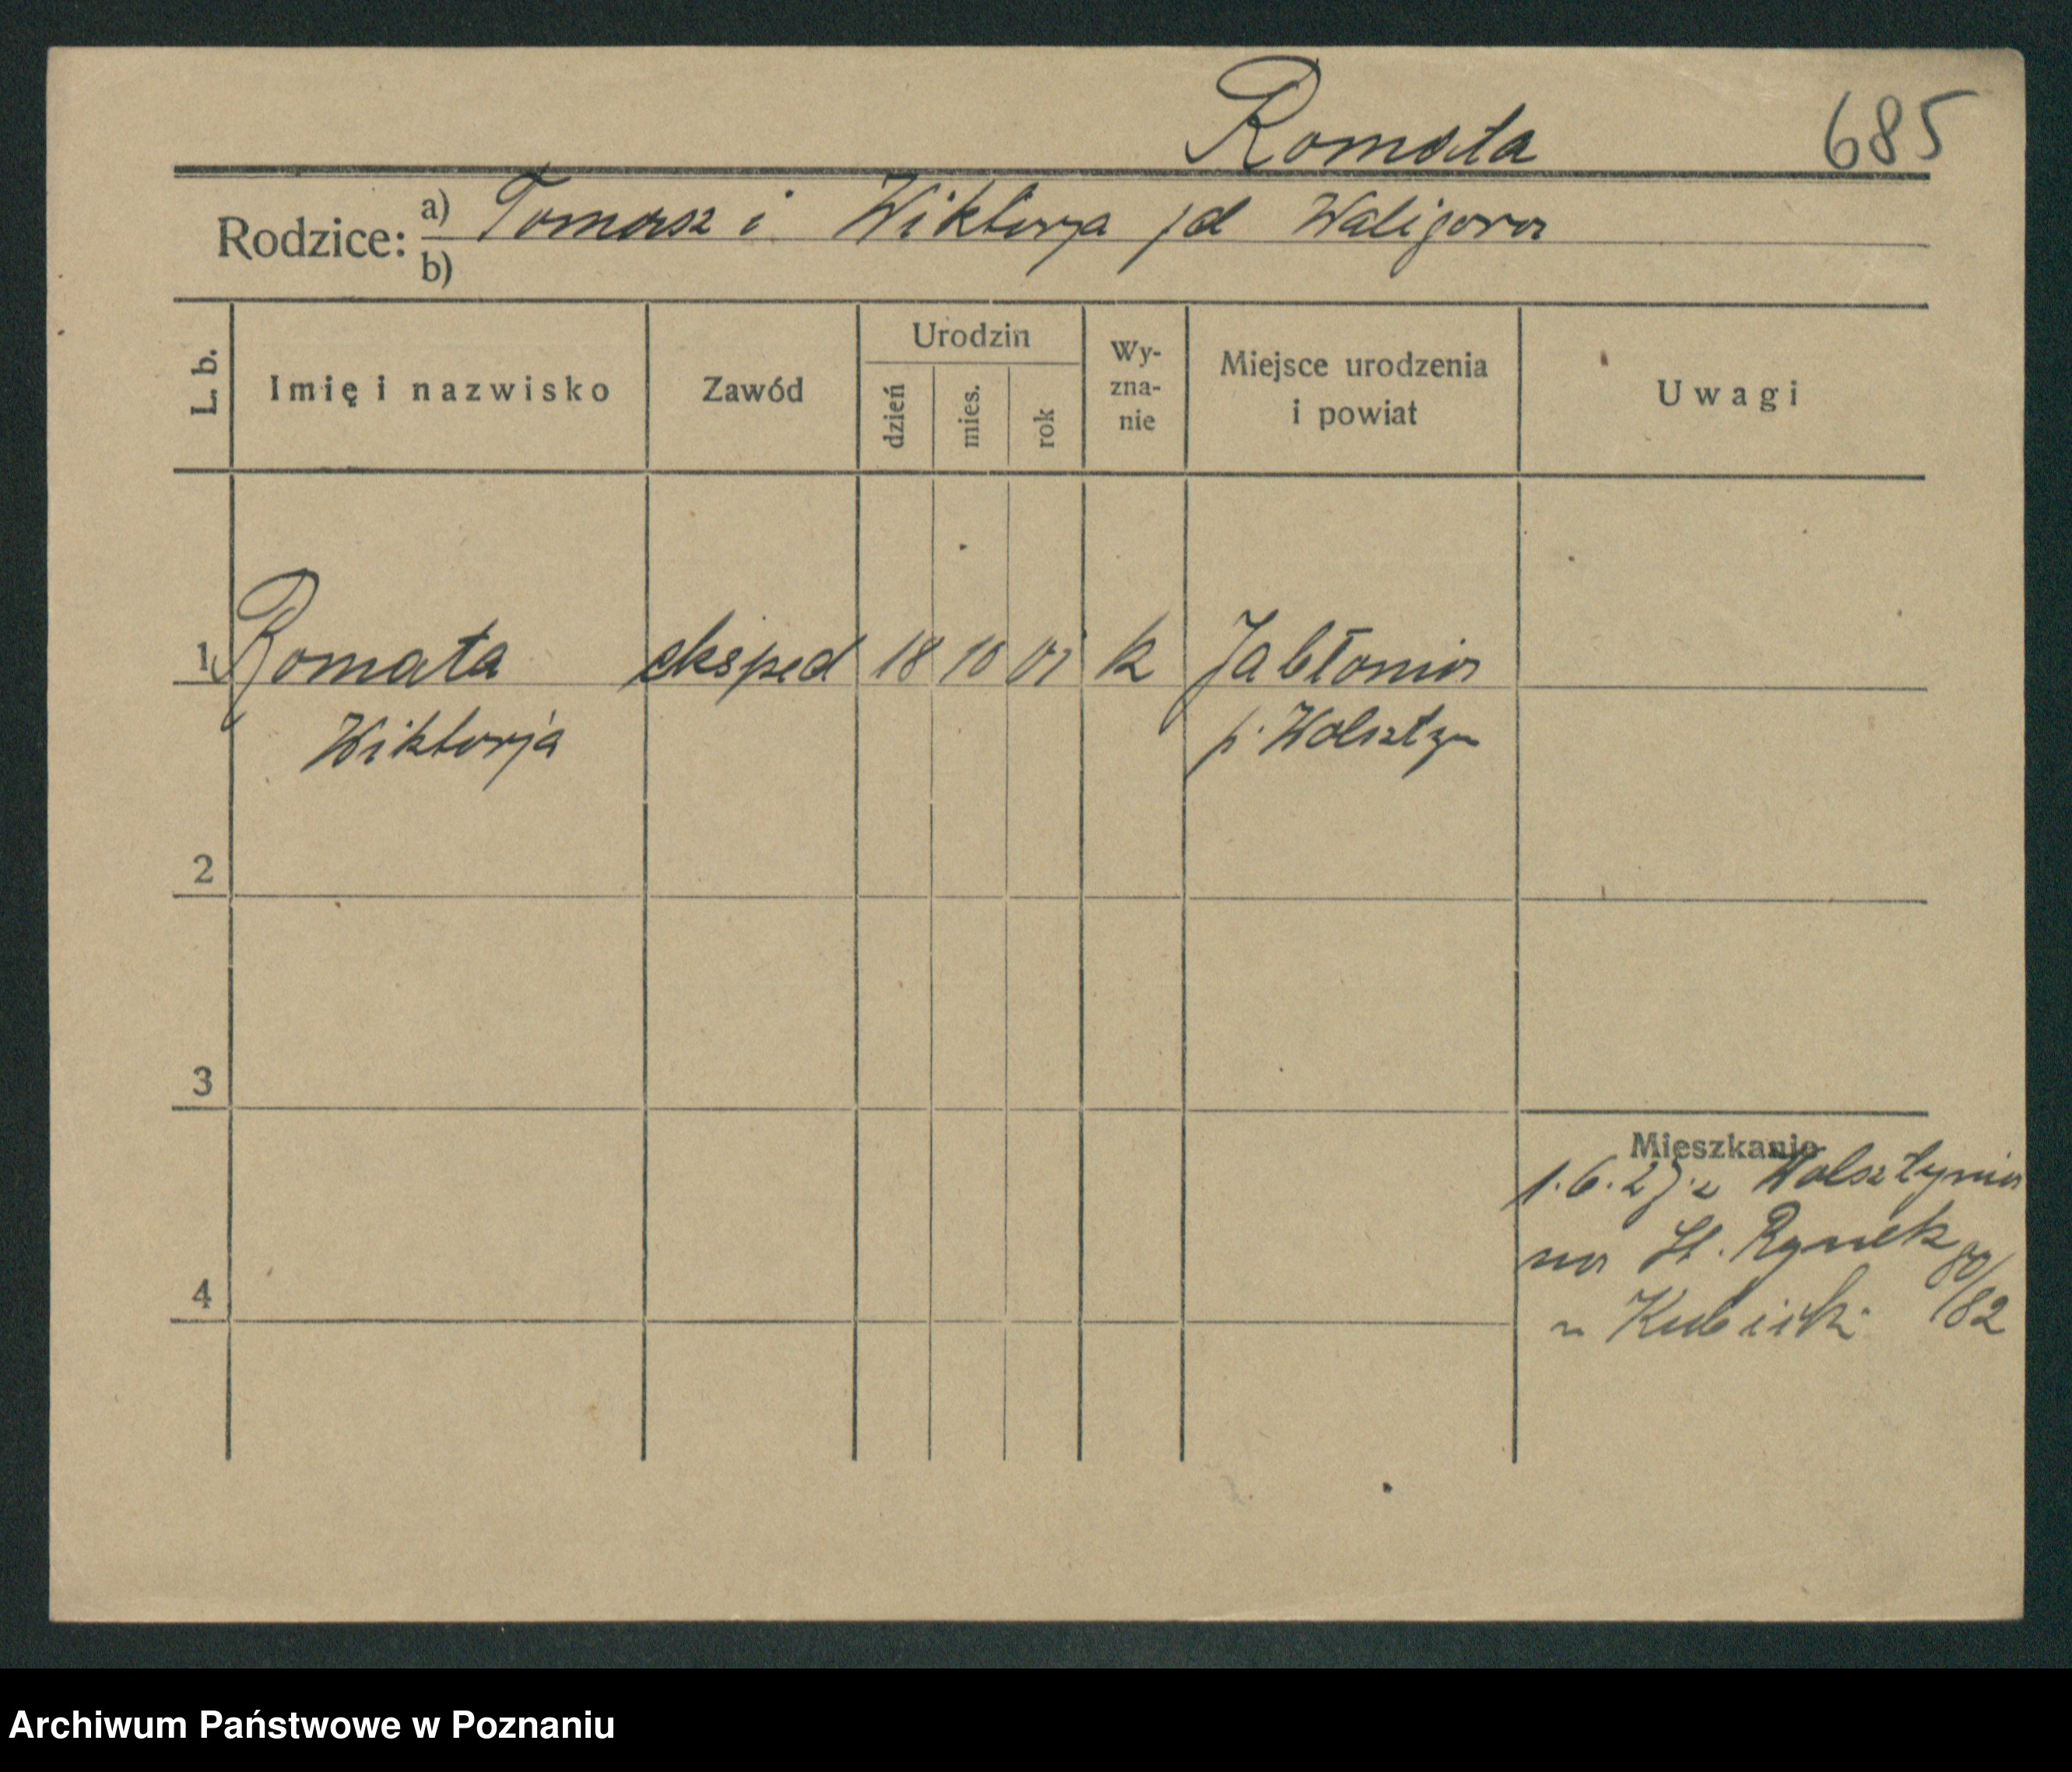 Romata 685
Rodzice: a) Tomasz i Wiktorja /d Waligora
b)
L. b. Imię i nazwisko Zawód Urodzin dzień mies. rok Wy-zna-nie Miejsce urodzenia i powiat Uwagi
1 Romata eksped 18 10 01 k Jabłonia
Wiktorja p. Wolsztyn
2
3
Mieszkanie
1.6.27. z Wolsztynia
na St. Rynek 80/82
4
Kubicki
Archiwum Państwowe w Poznaniu